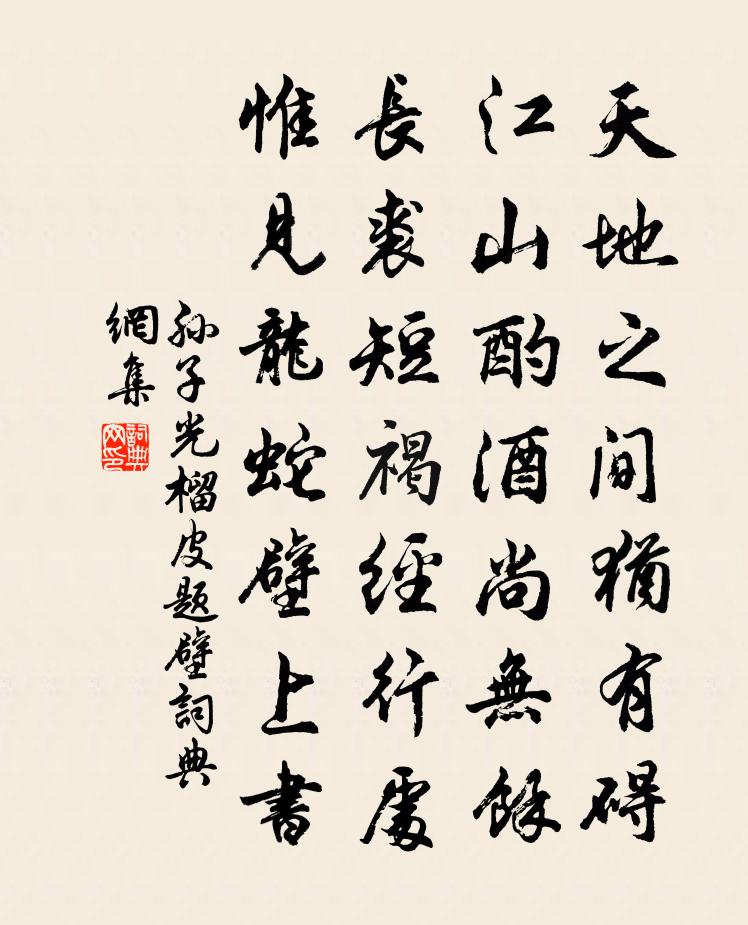 天地之間猶有碍
江山酌酒尚無餘
長裘短褐經行處
惟見龍蛇壁上書
孙子光榴皮题壁詞典
網集
詞典
网印